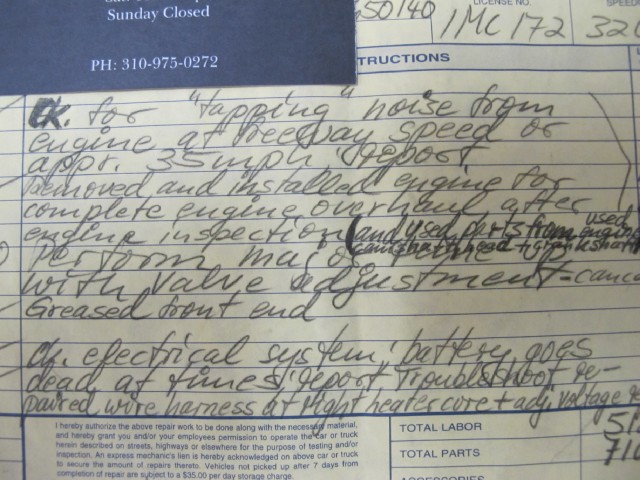 Sunday Closed
PH: 310-975-0272
50140
LICENSE NO.
1MC172
SPEED
320
TRUCTIONS
ck. for "tapping" noise from
engine at freeway speed or
appr. 35mph & report
Removed and installed engine for
complete engine overhaul after
engine inspection (and used parts from used engine
camshaft, head + crankshaft
Perform major tune up
with valve adjustment - cance
Greased front end
ck. electrical system, battery goes
dead at times & report Troubleshoot re-
paired wire harness at right heatercore + adj. voltage
I hereby authorize the above repair work to be done along with the necessary material,
and hereby grant you and/or your employees permission to operate the car or truck
herein described on streets, highways or elsewhere for the purpose of testing and/or
inspection. An express mechanic's lien is hereby acknowledged on above car or truck
to secure the amount of repairs thereto. Vehicles not picked up after 7 days from
completion of repair are subject to a $35.00 per day storage charge.
TOTAL LABOR
TOTAL PARTS
710
ACCESSORIES